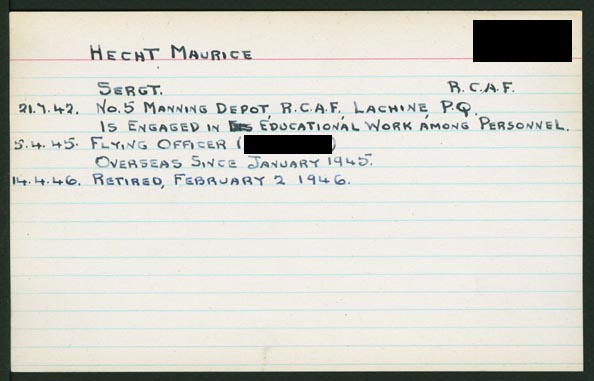 HECHT MAURICE
SERGT. R.C.A.F.
21.7.42. NO.5 MANNING DEPOT, R.C.A.F. LACHINE, P.Q.
IS ENGAGED IN EDUCATIONAL WORK AMONG PERSONNEL.
5.4.45. FLYING OFFICER ( )
OVERSEAS SINCE JANUARY 1945.
14.4.46. RETIRED, FEBRUARY 2 1946.